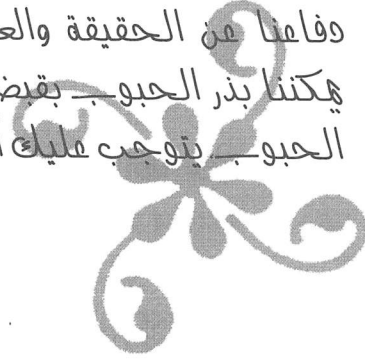 دفاعنا عن الحقيقة والع
يمكننا بذر الحبوب بقبض
الحبوب يتوجب عليك ا